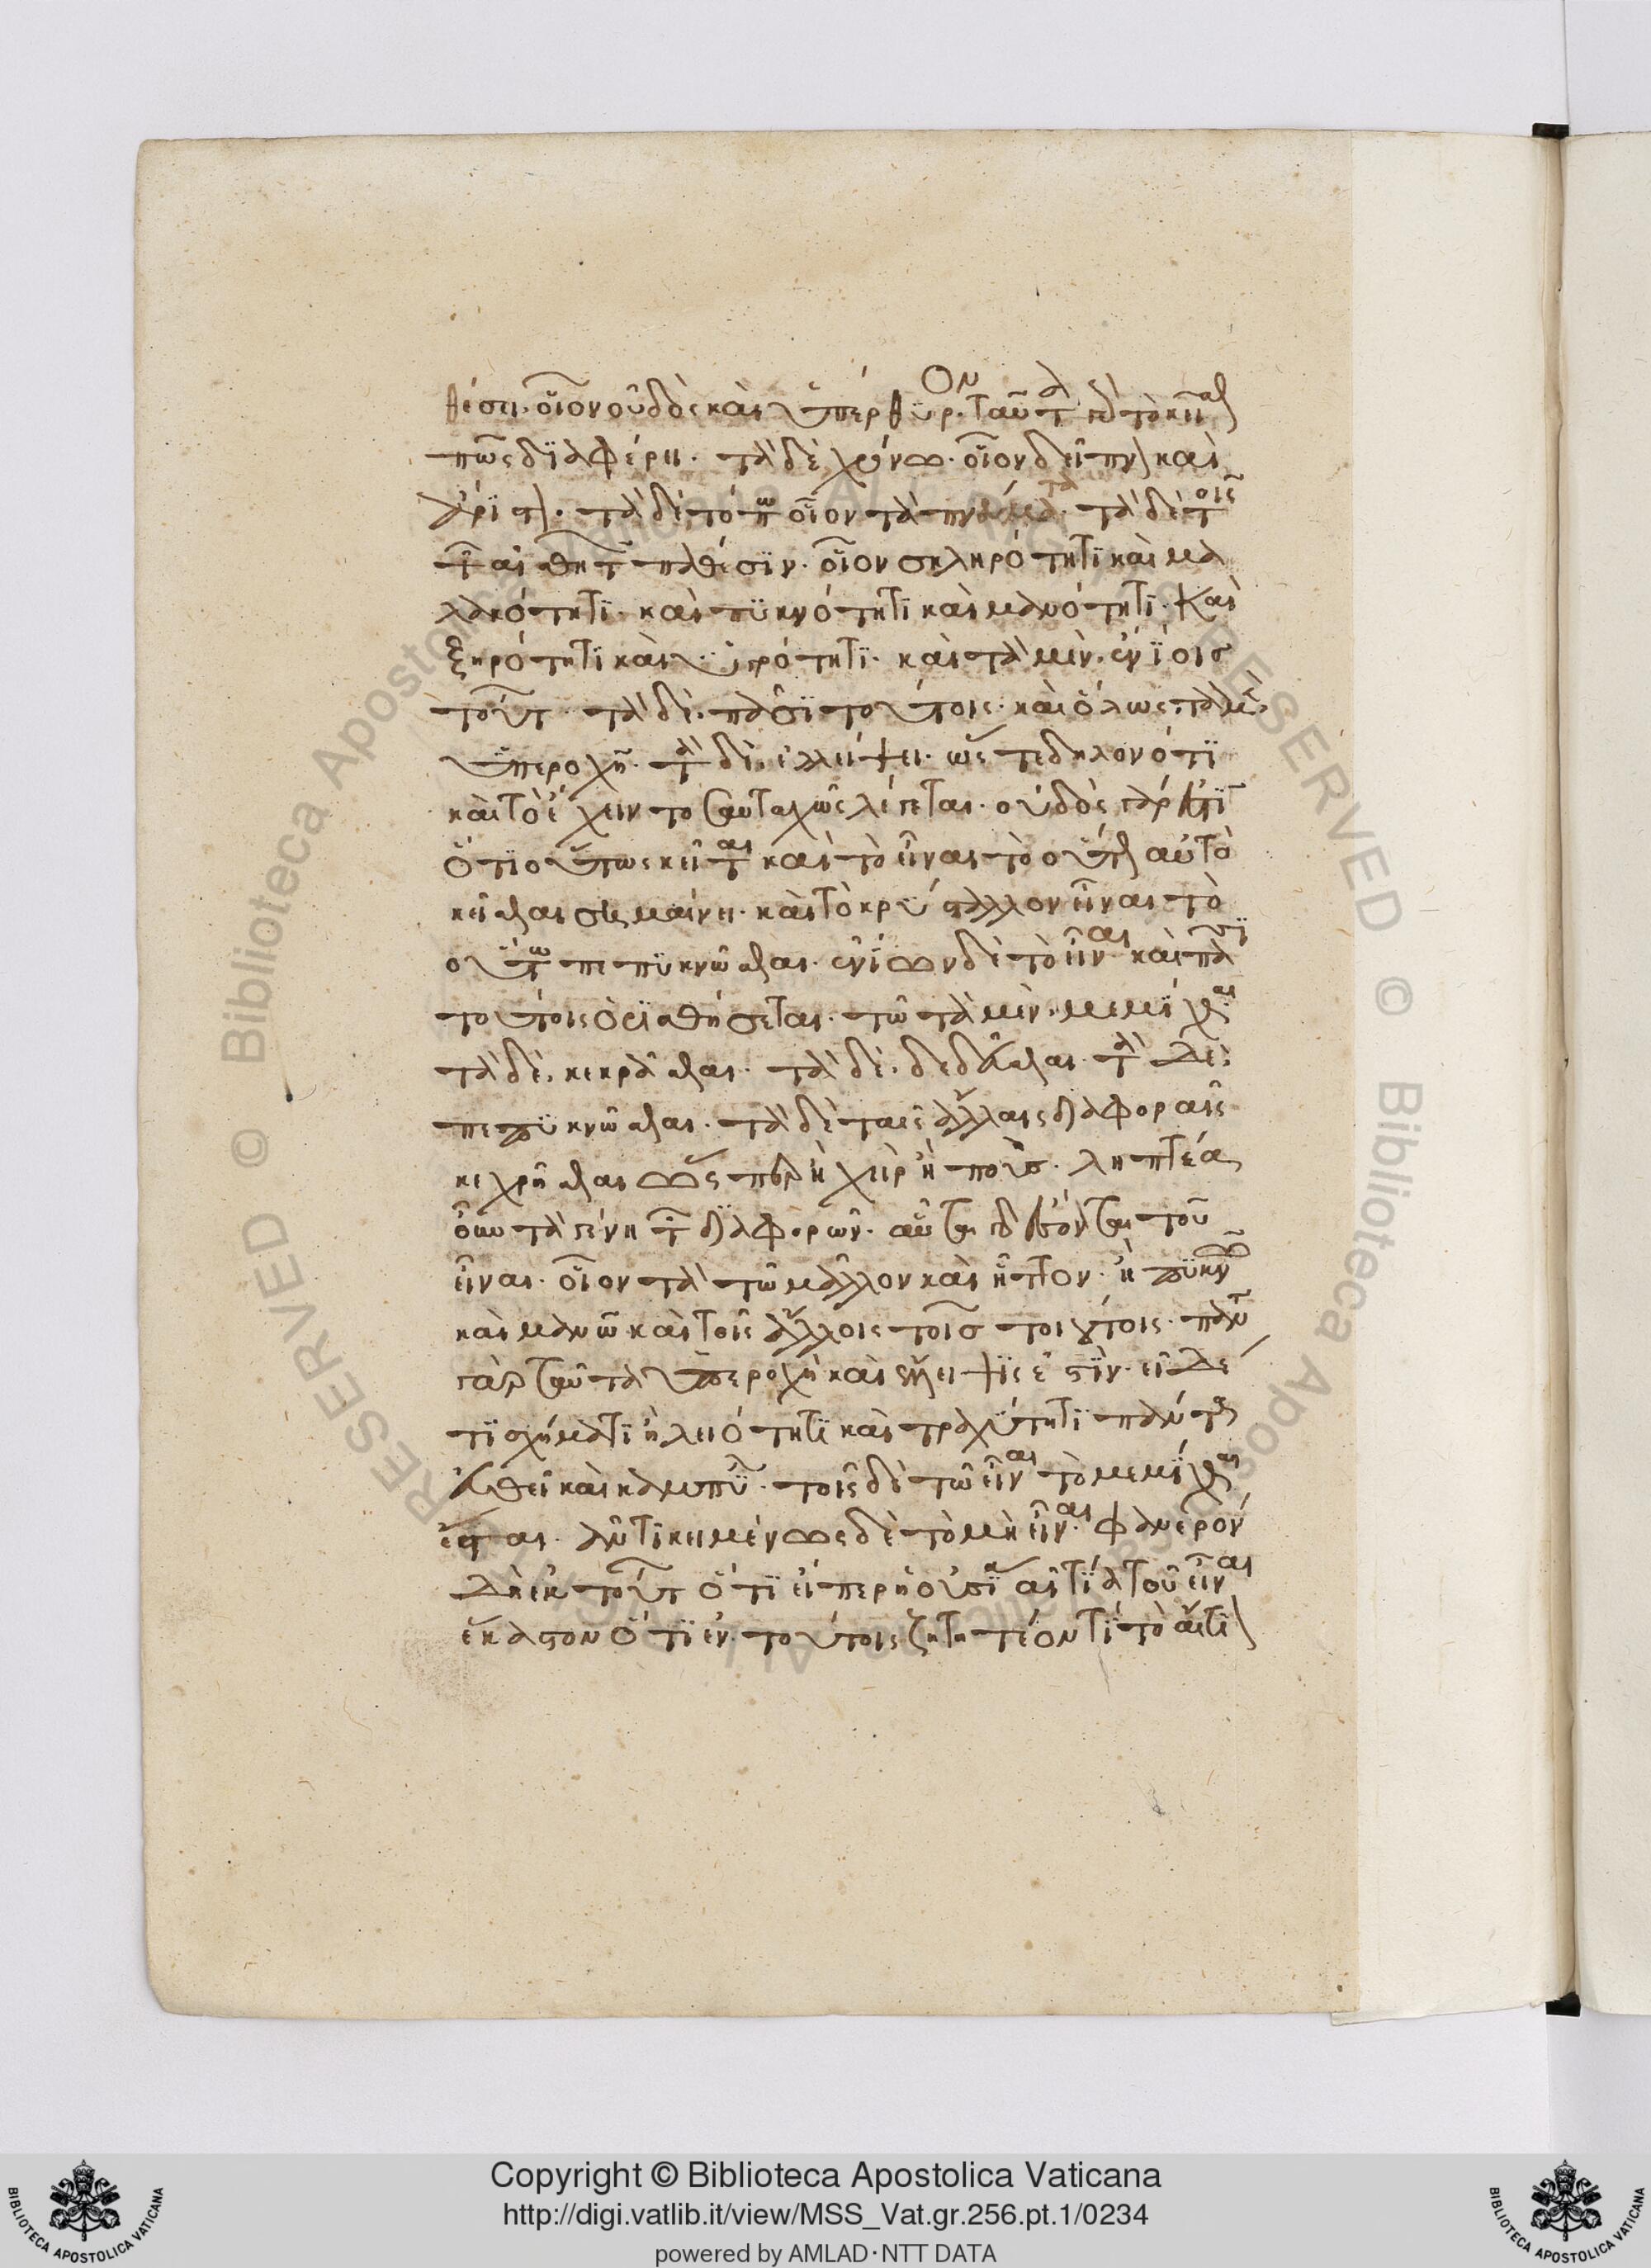 θέσει. οἷον οὐδὸς καὶ ὑπέρθυρον. ταῦτα γὰρ τὸ κεῖσθαι
πῶς διαφέρει. τὰ δὲ χρόνω. οἷον δεῖπνον καὶ
ἄριστον. τὰ δὲ τόπω οἷον τὰ πνεύματα. τὰ δὲ τοῖς
τῶν αἰσθητῶν πάθεσιν. οἷον σκληρότητι καὶ μα
λακότητι. καὶ πυκνότητι καὶ μανότητι. καὶ
ξηρότητι καὶ ὑγρότητι. καὶ τὰ μὲν. ἐνίοις
τούτων. τὰ δὲ. πᾶσι τούτοις. καὶ ὅλως τὰ μὲν.
ὑπεροχῇ. τὰ δὲ. ἐλλείψει. ὥστε δῆλον ὅτι
καὶ τὸ ἔστιν τοσαυταχῶς λέγεται. οὐδὸς γάρ ἐστιν
ὅτι οὕτως κεῖται καὶ τὸ εἶναι τὸ οὕτως αὐτὸ
κεῖσθαι σημαίνει. καὶ τὸ κρύσταλλον εἶναι τὸ
οὕτω πεπυκνῶσθαι. ἐνίων δὲ τὸ εἶναι καὶ πᾶσι
τούτοις ὁρισθήσεται. τῶ τὰ μὲν. μεμίχθαι
τὰ δὲ. κεκρᾶσθαι. τὰ δὲ. δεδέσθαι. τὰ δὲ.
πεπυκνῶσθαι. τὰ δὲ ταῖς ἄλλαις διαφοραῖς
κεχρῆσθαι ὥσπερ ἡ χεὶρ ἢ ποῦς. ληπτέα
οὖν τὰ γένη τῶν διαφορῶν. αὗται γὰρ ἔσονται τοῦ
εἶναι. οἷον τὰ τῶ μᾶλλον καὶ ἧττον. ἢ πυκνῶ
καὶ μανῶ καὶ τοῖς ἄλλοις τοῖς τοιούτοις. πάντα
γὰρ ταῦτα ὑπεροχὴ καὶ ἔλλειψις ἐστὶν. εἰ δέ
τι σχήματι ἢ λειότητι καὶ τραχύτητι πάντα
εὐθεῖ καὶ καμπύλω. τοῖς δὲ τῶ εἶναι τὸ μεμίχθαι
ἔσται. ἀντικειμένως δὲ τὸ μὴ εἶναι. φανερὸν
δὴ ἐκ τούτων ὅτι εἴπερ ἡ οὐσία αἰτία τοῦ εἶναι
ἕκαστον ὅτι ἐν τούτοις ζητητέον τί τὸ αἴτιον
Copyright © Biblioteca Apostolica Vaticana
http://digi.vatlib.it/view/MSS_Vat.gr.256.pt.1/0234
powered by AMLAD·NTT DATA
BIBLIOTECA APOSTOLICA VATICANA
BIBLIOTECA APOSTOLICA VATICANA